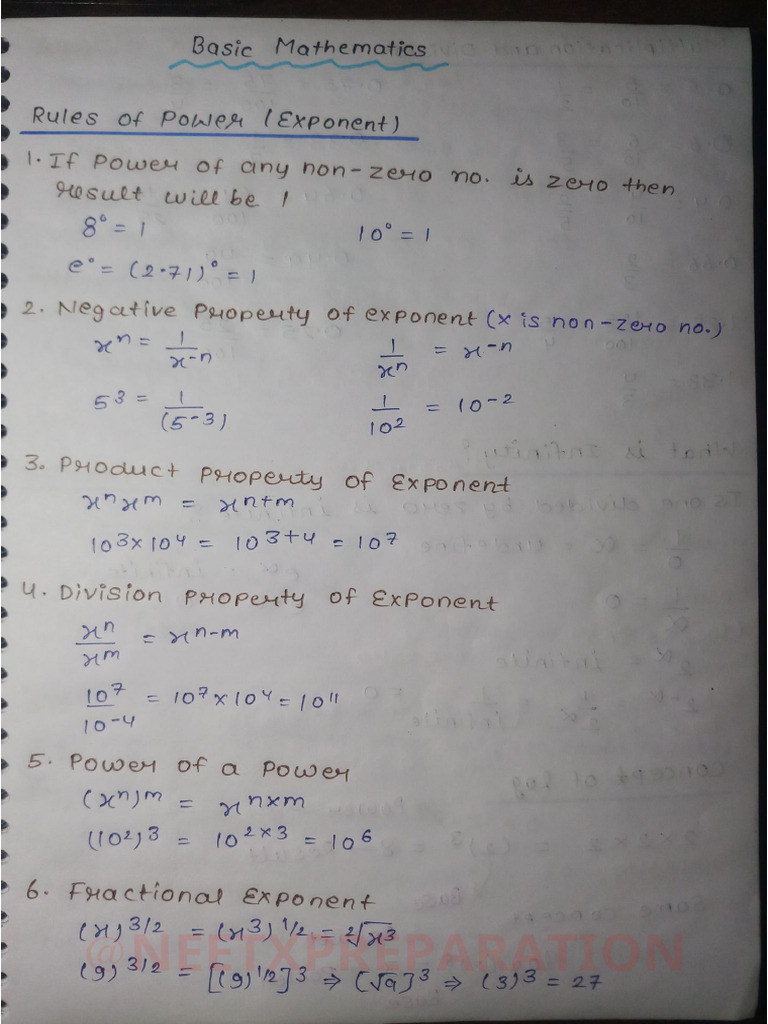 Basic Mathematics
Rules of Power (Exponent)
1. If Power of any non-zero no. is zero then
result will be 1
8⁰ = 1 10⁰ = 1
e⁰ = (2.71)⁰ = 1
2. Negative Property of exponent (x is non-zero no.)
xⁿ = 1/x⁻ⁿ 1/xⁿ = x⁻ⁿ
5³ = 1/(5⁻³) 1/10² = 10⁻²
3. Product Property of Exponent
xⁿxᵐ = xⁿ⁺ᵐ
10³×10⁴ = 10³⁺⁴ = 10⁷
4. Division Property of Exponent
xⁿ/xᵐ = xⁿ⁻ᵐ
10⁷/10⁻⁴ = 10⁷×10⁴ = 10¹¹
5. Power of a Power
(xⁿ)ᵐ = xⁿˣᵐ
(10²)³ = 10²ˣ³ = 10⁶
6. Fractional Exponent
(x)^3/2 = (x³)^1/2 = ²√x³
(9)^3/2 = [(9)^1/2]³ ⇒ (√9)³ ⇒ (3)³ = 27
@NEETXPREPARATION